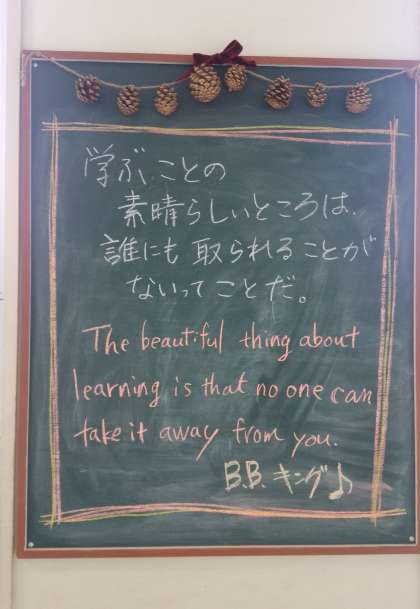 学ぶことの
素晴らしいところは、
誰にも取られることが
ないってことだ。
The beautiful thing about
learning is that no one can
take it away from you.
B.B. キング♪